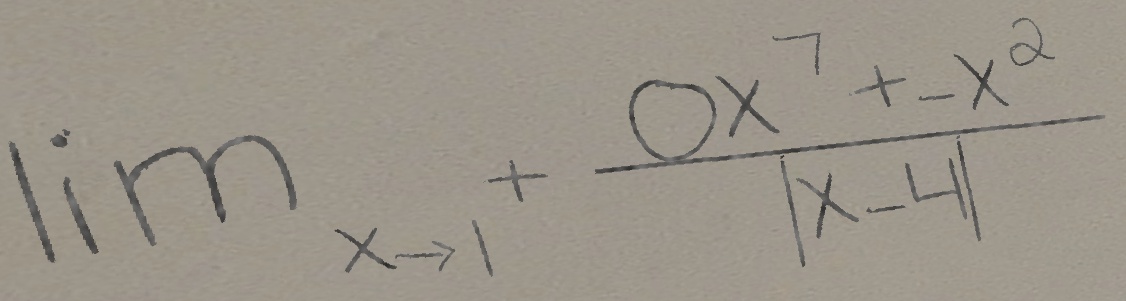 \lim_{x \to 1^+} \frac{0x^7 + -x^2}{|x-4|}